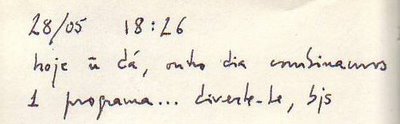 28/05 18:26
hoje ñ dá, outro dia combinamos
1 programa... diverte-te, bjs